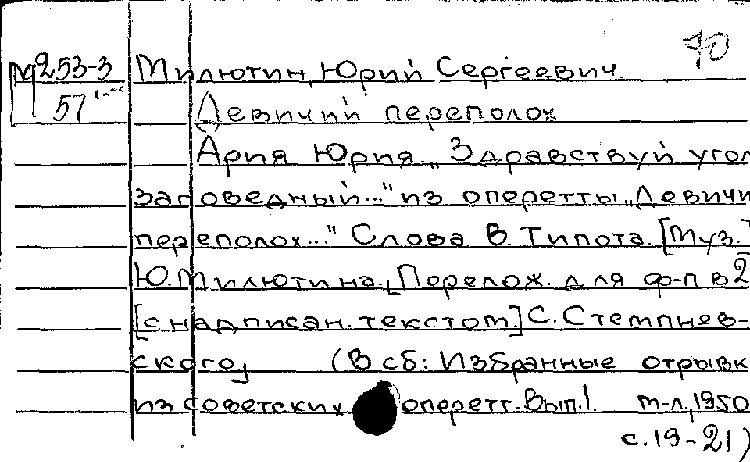 70
М 253-3 Милютин, Юрий Сергеевич
57 Девичий переполох
Ария Юрия „Здравствуй угол
заповедный..." из оперетты „Девичи
переполох..." Слова В. Типота. [Муз.
Ю. Милютина. [Перелож. для ф-п в 2
[с надписан. текстом] С. Стемпнев-
ского] (В сб: Избранные отрывк
из советских оперетт. Вып. 1. м-л, 1950
с. 19-21)